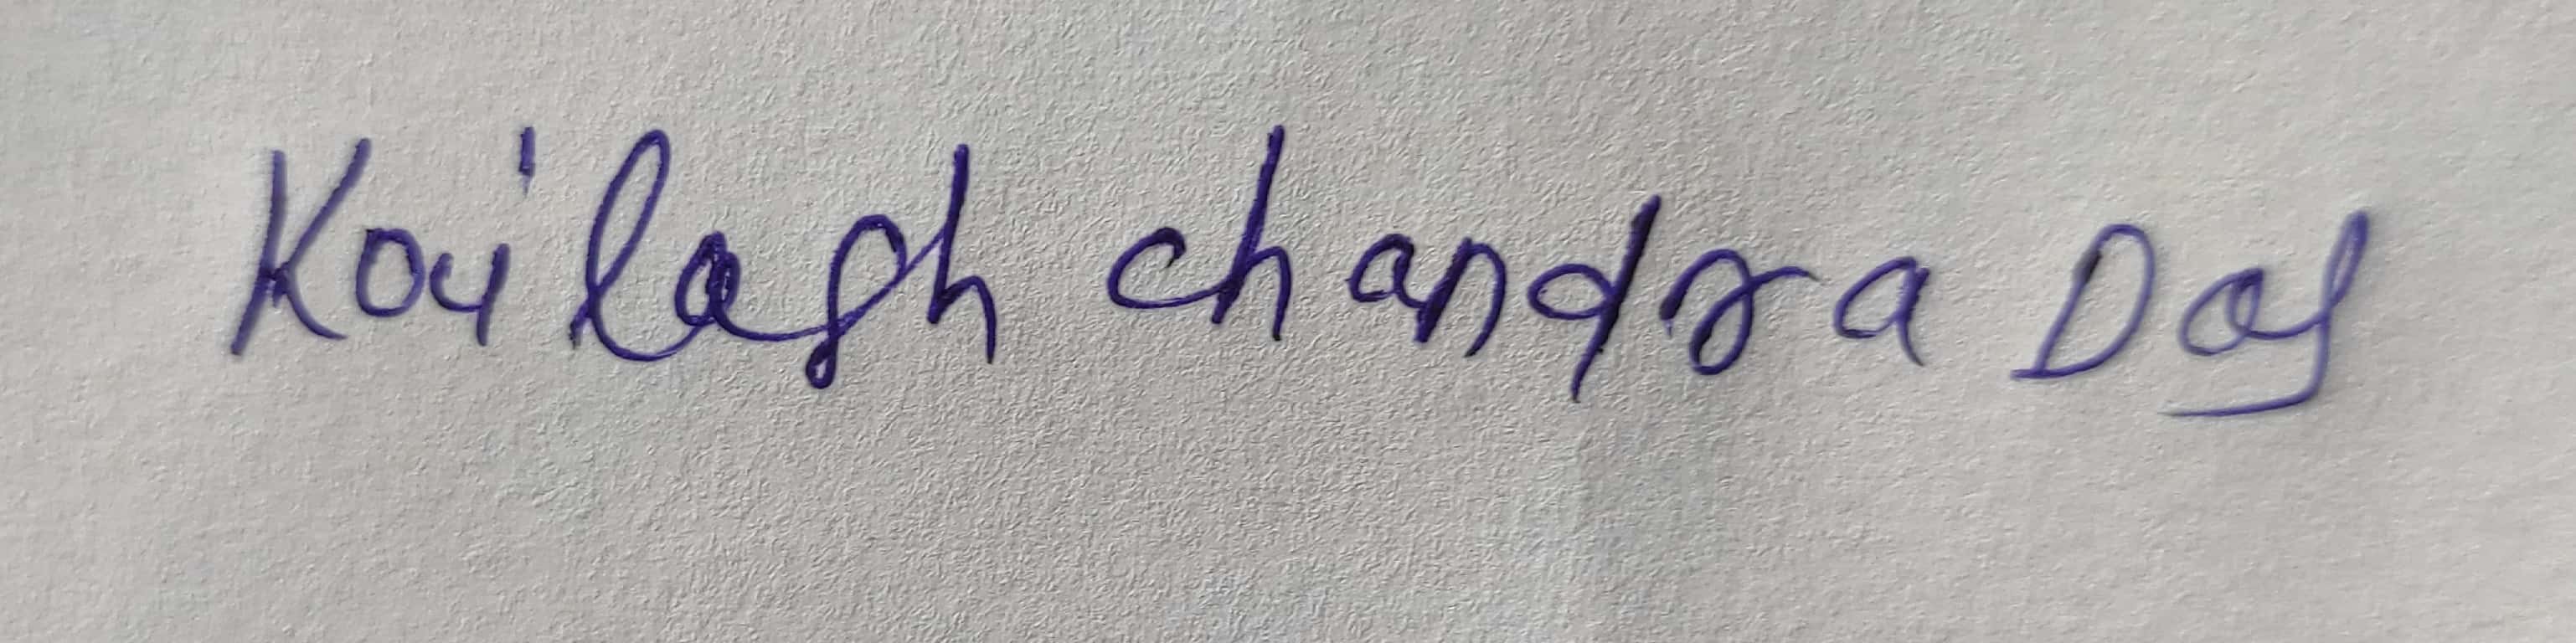 Kailash chandra Das